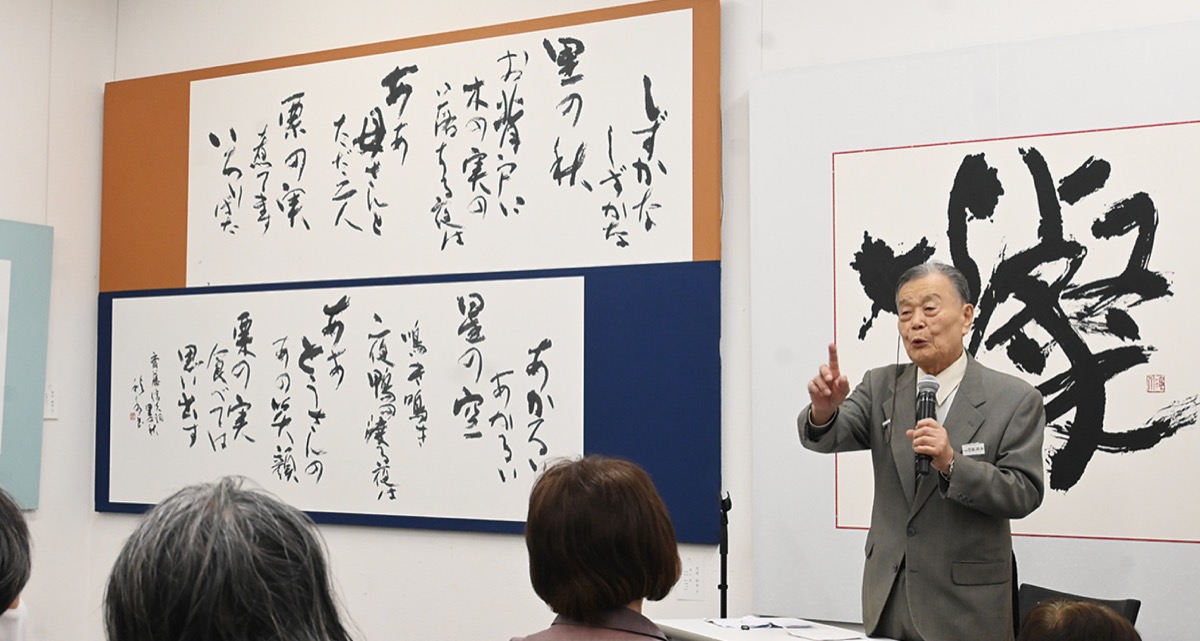 しずかな
しずかな
里の秋
お背戸に
木の実の
落ちる夜は
ああ
母さんと
ただ二人
栗の実
煮てます
いろりばた
あかるい
あかるい
星の空
鳴き鳴き
夜鴨の渡る夜は
ああ
とうさんの
あの笑顔
栗の実
食べては
思い出す
齊藤信夫詞
里の秋